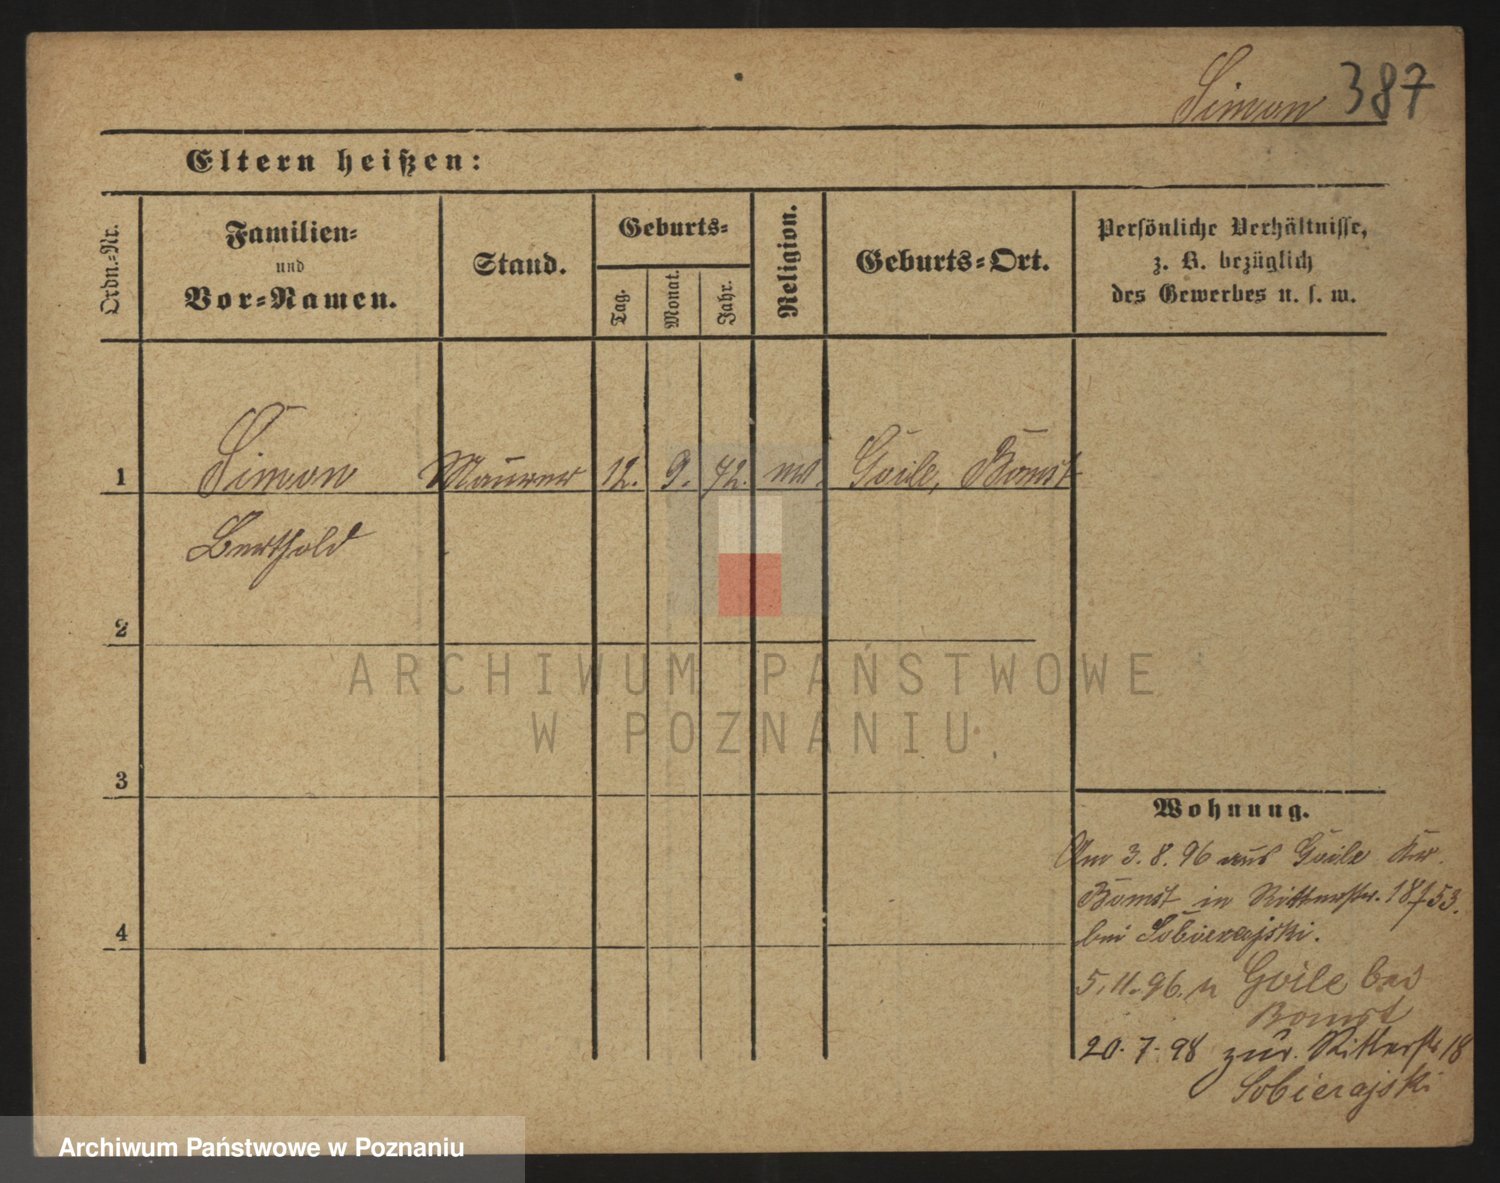 Simon 387
Eltern heißen:
Ordn.-Nr.
Familien-
und
Vor-Namen.
Stand.
Geburts-
Tag.
Monat.
Jahr.
Religion.
Geburts-Ort.
Persönliche Verhältnisse,
z. B. bezüglich
des Gewerbes u. s. w.
1 Simon Maurer 12. 9. 72. Goile, Bomst
Berthold
2
3
4
Wohnung.
Am 3.8.96 aus Goile Kr.
Bomst in Ritterstr. 18
bei Sobierajski.
5.11.96. n Goile bei
Bomst
20.7.98 zur. Ritterstr 18
Sobierajski
ARCHIWUM PAŃSTWOWE
W POZNANIU
Archiwum Państwowe w Poznaniu